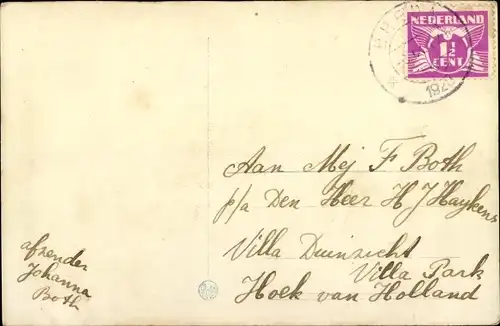 NEDERLAND
1½
CENT
Aan Mej F Both
p/a Den Heer H J Haykens
Villa Duinzicht
Villa Park
Hoek van Holland
afzender
Johanna
Both